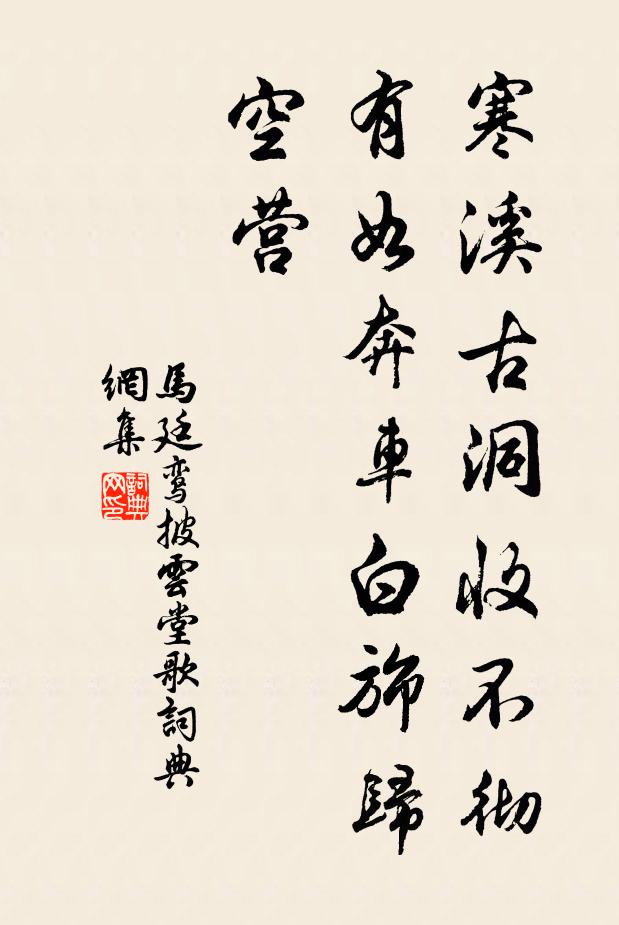 寒溪古洞收不彻
有如奔車白旆歸
空营
馬廷鸾披雲堂歌詞典
網集
詞典
网印